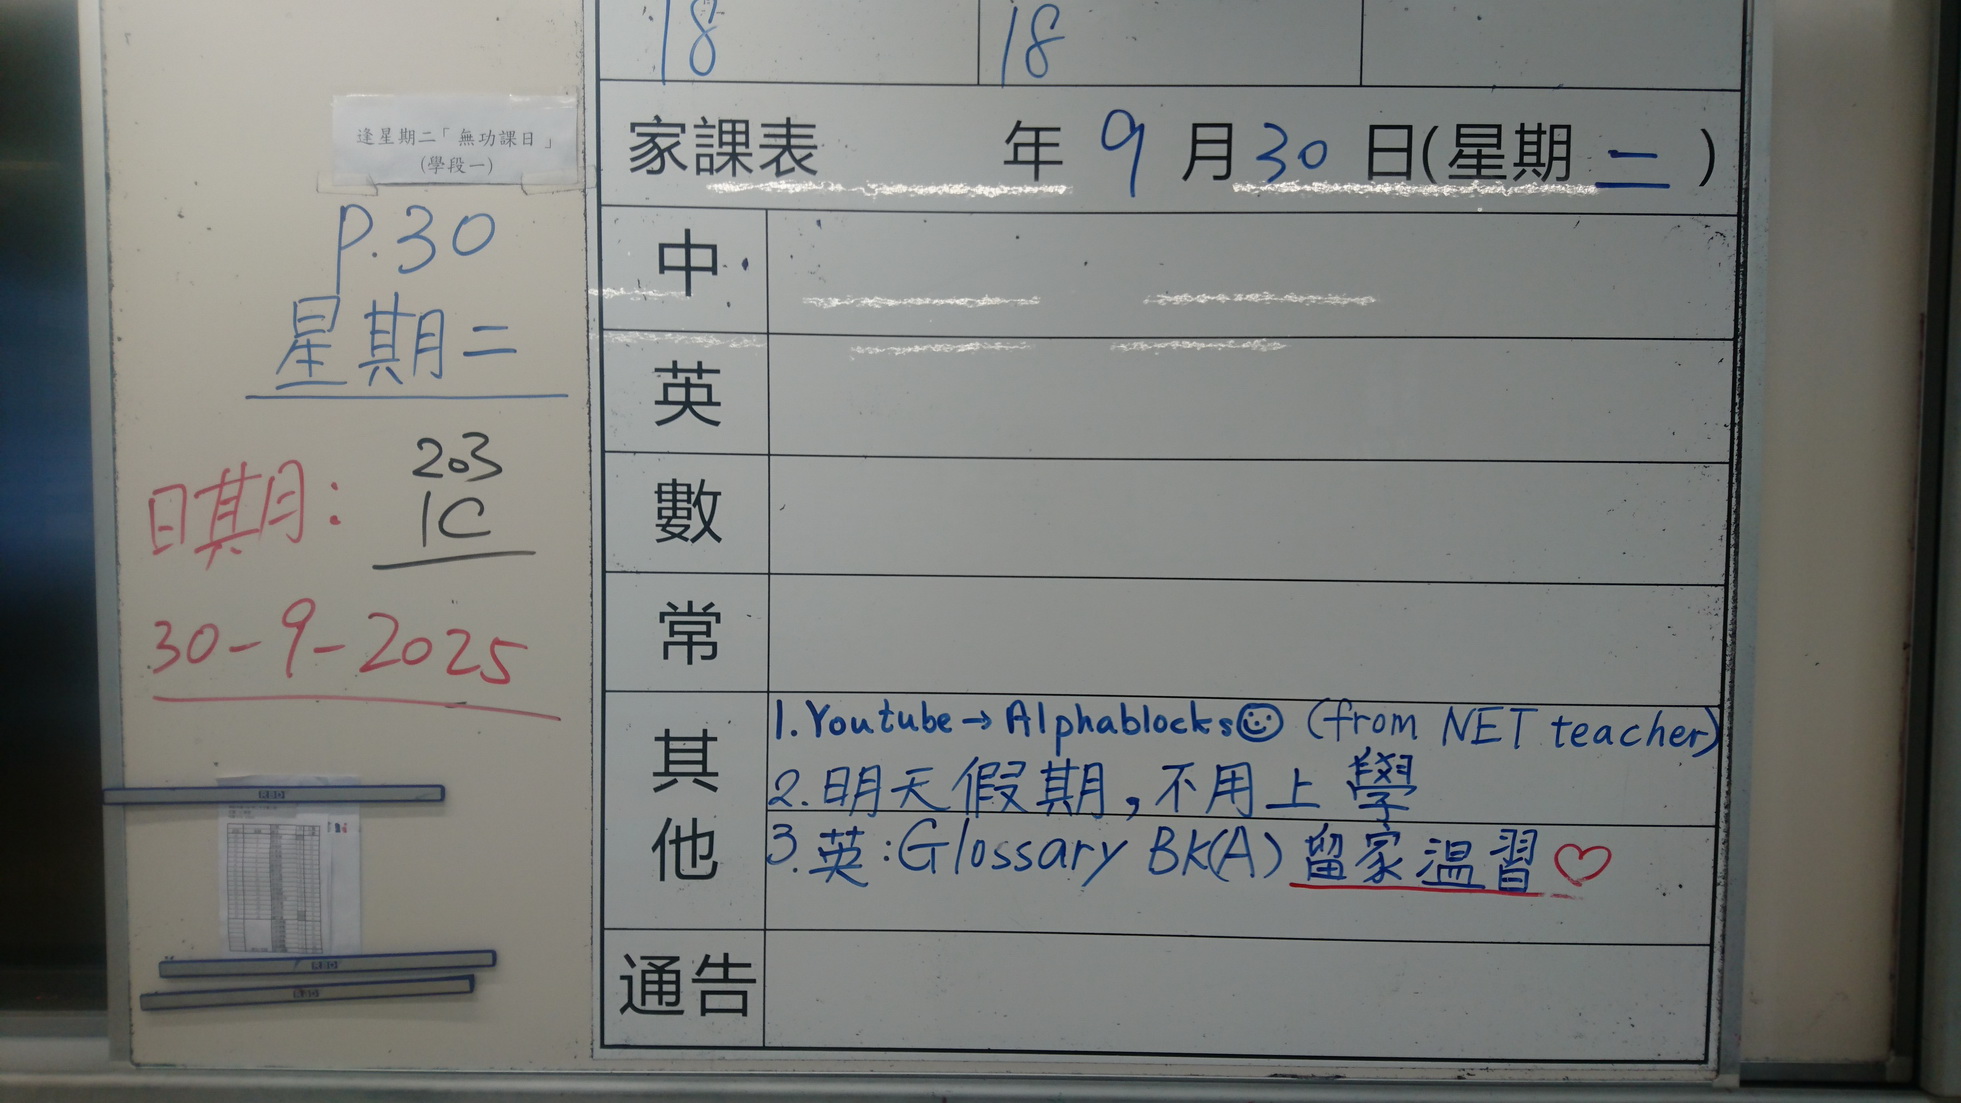 18 18
逢星期二「無功課日」
(學段一)
P.30
星期二
日期:
203
1C
30-9-2025
家課表 年 9 月 30 日(星期 二 )
中
英
數
常
其他
1. Youtube → Alphablocks☺ (from NET teacher)
2. 明天假期,不用上學
3. 英:Glossary BK(A) 留家温習♡
通告